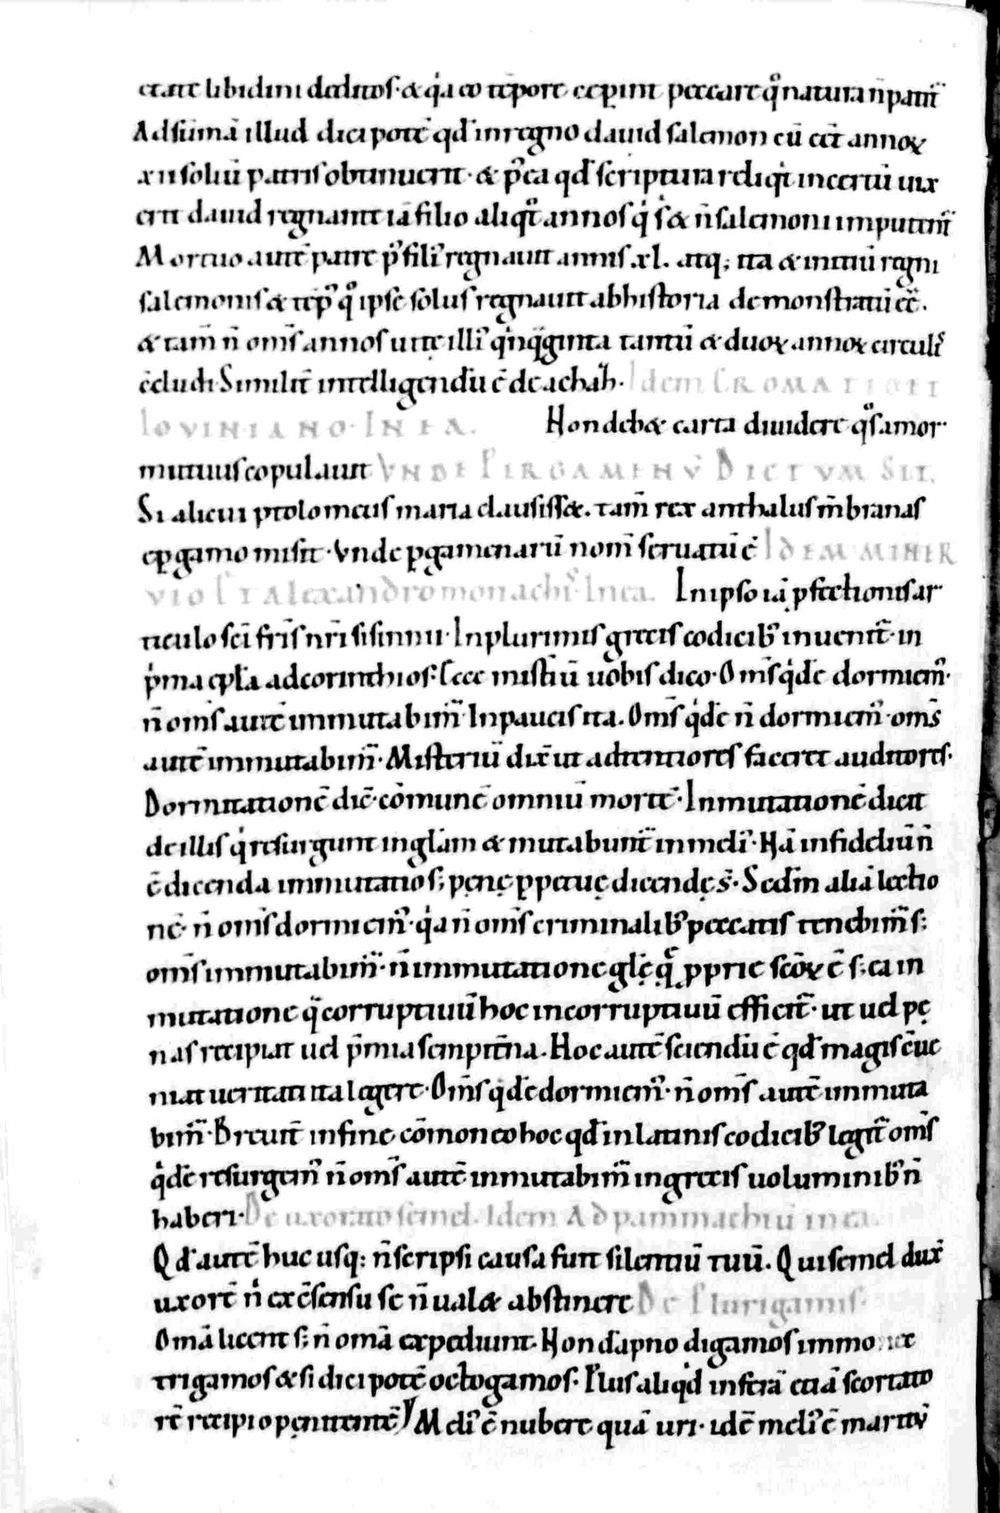 etate libidini deditos· & q̍a eo tēpore ceperint peccare qͦ natura n̄ patit̄
Ad sūmā illud dici potē qd̄ in regno dauid salemon cū eēt annoꝝ
xii soliū patris obtinuerit· & p̄ea qd̄ scriptura reliq̍t incertū uix
erit dauid regnante iā filio aliqͦt annos q̍ s̄ & n̄ salemoni imputent̄
Mortuo autē patre p̄ filiꝰ regnauit annis .xl. atq; ita & initiū regni
salemonis & tēpꝰ qͦ ipse solus regnauit ab historia demonstratū ēē.
& tam̄ n̄ om̄s annos uite illiꝰ q̍nq̄ginta tantū & duoꝝ annoꝝ circulꝰ
c̄cludi· Similit̄ intelligendū ē de achab̄. Idem CROMATIO ET
IOVINIANO· IN EA. Non debet carta diuidere qͦs amor
mutuus copulauit VNDE PERGAMENV̄ DICTVM SIT.
Si alicui ptolomeus maria clausiss&. tam̄ rex anthalus m̄branas
e ꝑgamo misit· Vnde ꝑgamenarū nom̄ seruatū ē IDEM MINER
VIO ET Alexandro monachꝭ· In ea. In ipso iā ꝓfectionis ar
ticulo sc̄i fr̄is nr̄i sisinnii· In plurimis grecis codicibꝰ inuenit̄· in
p̍ma epl̄a ad corinthios· Ecce mistiū uobis dico· Om̄s q̍dē dormiemꝰ·
n̄ om̄s autē immutabim̄· In paucis ita. Om̄s q̍dē n̄ dormiemꝰ· om̄s
autē immutabim̄· Misteriū dix̄ ut adtentiores faceret auditores·
Dormitationē dic̄· cōmunē omniū mortē· Inmutationē dicit
de illis q̍ resurgunt in gl̄am & mutabunt̄ in meliꝰ· Nā infideliū n̄
ē dicenda immutatio s; pęnę ꝑpetuę dicendę s̄· Sedm̄ aliā lectio
nē· n̄ om̄s dormiemꝰ· q̍a n̄ om̄s criminalibꝰ peccatis tenebim̄ s;
om̄s immutabim̄· n̄ immutatione gl̄ę q̄ ꝓprie sc̄oꝝ ē s; ea in
mutatione q̄ corruptiuū hoc incorruptiuū efficit̄· ut uel pę
nas recipiat uel p̄mia sempit̄na. Hoc autē sciendū ē qd̄ magis c̄ue
niat ueritati ita legere· Om̄s q̍dē dormiemꝰ· n̄ om̄s autē immuta
bim̄· Breuit̄ in fine cōmoneo hoc qd̄ in latinis codicibꝰ legit̄ om̄s
q̍dē resurgemꝰ n̄ om̄s autē inmutabim̄ in grecis uoluminibꝰ n̄
haberi· De uxorato semel. Idem Ad pammachiū in ea.
Qd̄ autē huc usq; n̄ scripsi causa fuit silentiū tuū. Qui semel dux̄
uxorē n̍ ex c̄sensu se n̄ ual& abstinere De Plurigamis·
Om̄a licent s; n̄ om̄a expediunt. Non dāpno digamos immo et
trigamos & si dici potē octogamos· Plus aliq̍d inferā etiā scortato
rē recipio penitentē Meliꝰ ē nubere quā uri· idē meliꝰ ē maritū